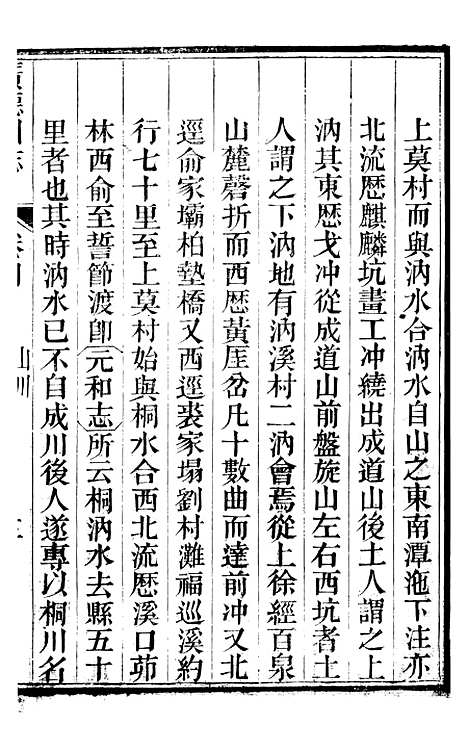 上莫村而與汭水合汭水自山之東南潭沲下注亦
北流歴麒麟坑畫工冲繞出成道山後土人謂之上
汭其東歴戈冲從成道山前盤旋山左右西坑者土
人謂之下汭地有汭溪村二汭會焉從上徐經百泉
山麓磬折而西歴黄厓岔凡十數曲而達前冲又北
逕俞家壩柏墊橋又西逕裴家塌劉村灘福巡溪約
行七十里至上莫村始與桐水合西北流歴溪口茆
林西俞至誓節渡卽元和志所云桐汭水去縣五十
里者也其時汭水已不自成川後人遂專以桐川名
廣德州志
山川